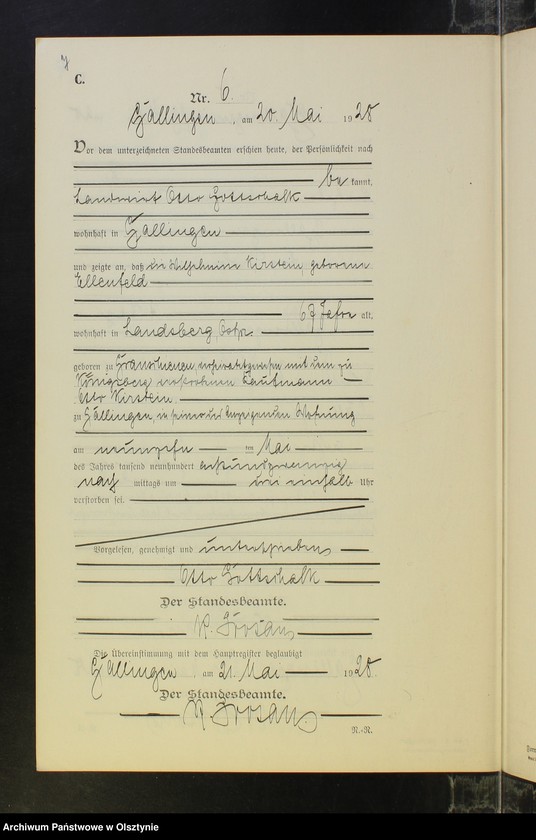 C.
Nr. 6.
Gallingen, am 20. Mai 1928
Vor dem unterzeichneten Standesbeamten erschien heute, der Persönlichkeit nach
be kannt,
Landwirt Otto Gottschalk
wohnhaft in Gallingen
und zeigte an, daß die Wilhelmine Kirstein, geborene
Ellenfeld
67 Jahre alt,
wohnhaft in Landsberg Ostpr.
geboren zu verheiratet gewesen mit dem zu
Königsberg verstorbenen Kaufmann
Otto Kirstein
zu Gallingen, in seiner Wohnung
am neunzehnten Mai
des Jahres tausend neunhundert achtundzwanzig
nach mittags um Uhr
verstorben sei.
Vorgelesen, genehmigt und unterschrieben
Otto Gottschalk
Der Standesbeamte.
Die Übereinstimmung mit dem Hauptregister beglaubigt
Gallingen, am 21. Mai 1928.
Der Standesbeamte.
N.-R.
Archiwum Państwowe w Olsztynie